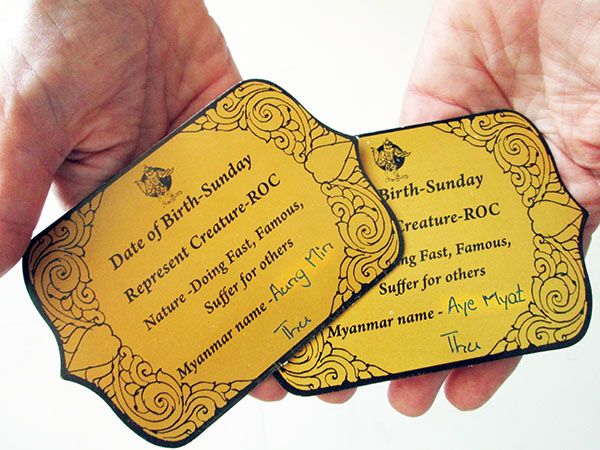 Date of Birth-Sunday
Represent Creature-ROC
Nature -Doing Fast, Famous,
Suffer for others
Myanmar name - Aung Min
Thu
Birth-Sunday
Creature-ROC
Doing Fast, Famous,
Suffer for others
Myanmar name - Aye Myat
Thu